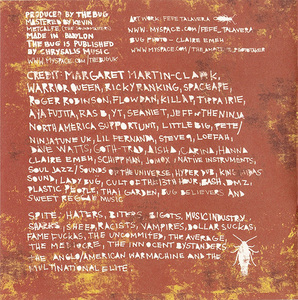 PRODUCED BY THE BUG
MASTERED BY KEVIN
METCALFE (THE SOUNDMASTERS)
MADE IN BABYLON
THE BUG IS PUBLISHED
BY CHRYSALIS MUSIC
WWW.MYSPACE.COM/THEBUGUK
ART WORK: FEFE TALAVERA
WWW.MYSPACE.COM/FEFE_TALAVERA
BUG PHOTO - CLAIRE EMEH
WWW.MYSPACE.COM/
CREDIT - MARGARET MARTIN-CLARK,
WARRIOR QUEEN, RICKY RANKING, SPACEAPE,
ROGER ROBINSON, FLOWDAN, KILLAP, TIPPA IRIE,
AYA FUJITA, RAS B, YT, SEANIET, JEFF WTHENINJA
NORTH AMERICA SUPPORTUNIT, LITTLE BIG, PETE/
NINJATUNE UK, LIL FERNANDA, STEVE G, LOEFAH,
DAVE WATTS, GOTH-TRAD, AISHA, CARINA, HANNA
CLAIRE EMEH, SCHIPPMAN, JONOX, NATIVE INSTRUMENTS,
SOUL JAZZ/SOUNDS OF THE UNIVERSE, HYPERDUB, KING MIDAS
SOUND, LADYBUG, CULT OF THE 13TH HOUR, BASH, DMZ,
PLASTIC PEOPLE, THAI GARDEN, BUG BELIEVERS AND
SWEET REGGAE MUSIC
SPITE.. HATERS, BITERS BIGOTS, MUSIC INDUSTRY,
SHARKS, SHEEP, RACISTS, VAMPIRES, DOLLAR SUCKAS,
FAME FUCKAS, THE UNCOMMITED, THE AVERAGE,
THE MEDIOCRE, THE INNOCENT BYSTANDERS
THE ANGLO/AMERICAN WARMACHINE AND THE
MULTINATIONAL ELITE